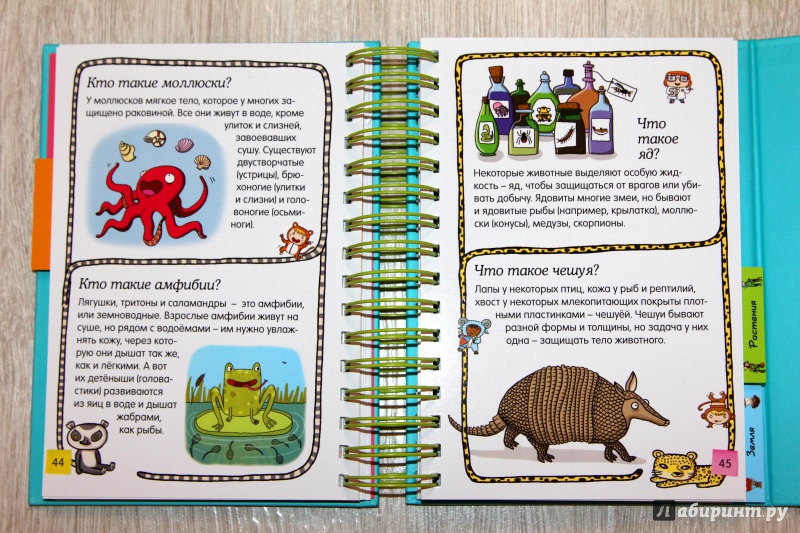 Кто такие моллюски?
У моллюсков мягкое тело, которое у многих за-
щищено раковиной. Все они живут в воде, кроме
улиток и слизней,
завоевавших
сушу. Существуют
двустворчатые
(устрицы), брю-
хоногие (улитки
и слизни) и голо-
воногие (осьми-
ноги).
Кто такие амфибии?
Лягушки, тритоны и саламандры – это амфибии,
или земноводные. Взрослые амфибии живут на
суше, но рядом с водоёмами – им нужно увлаж-
нять кожу, через кото-
рую они дышат так же,
как и лёгкими. А вот
их детёныши (голова-
стики) развиваются
из яиц в воде и дышат
жабрами,
как рыбы.
44
Что
такое
яд?
Некоторые животные выделяют особую жид-
кость – яд, чтобы защищаться от врагов или уби-
вать добычу. Ядовиты многие змеи, но бывают
и ядовитые рыбы (например, крылатка), моллю-
ски (конусы), медузы, скорпионы.
Что такое чешуя?
Лапы у некоторых птиц, кожа у рыб и рептилий,
хвост у некоторых млекопитающих покрыты плот-
ными пластинками – чешуёй. Чешуи бывают
разной формы и толщины, но задача у них
одна – защищать тело животного.
45
Растения
Земля
Лабиринт.ру